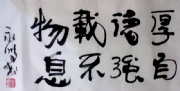 厚德載物
自强不息